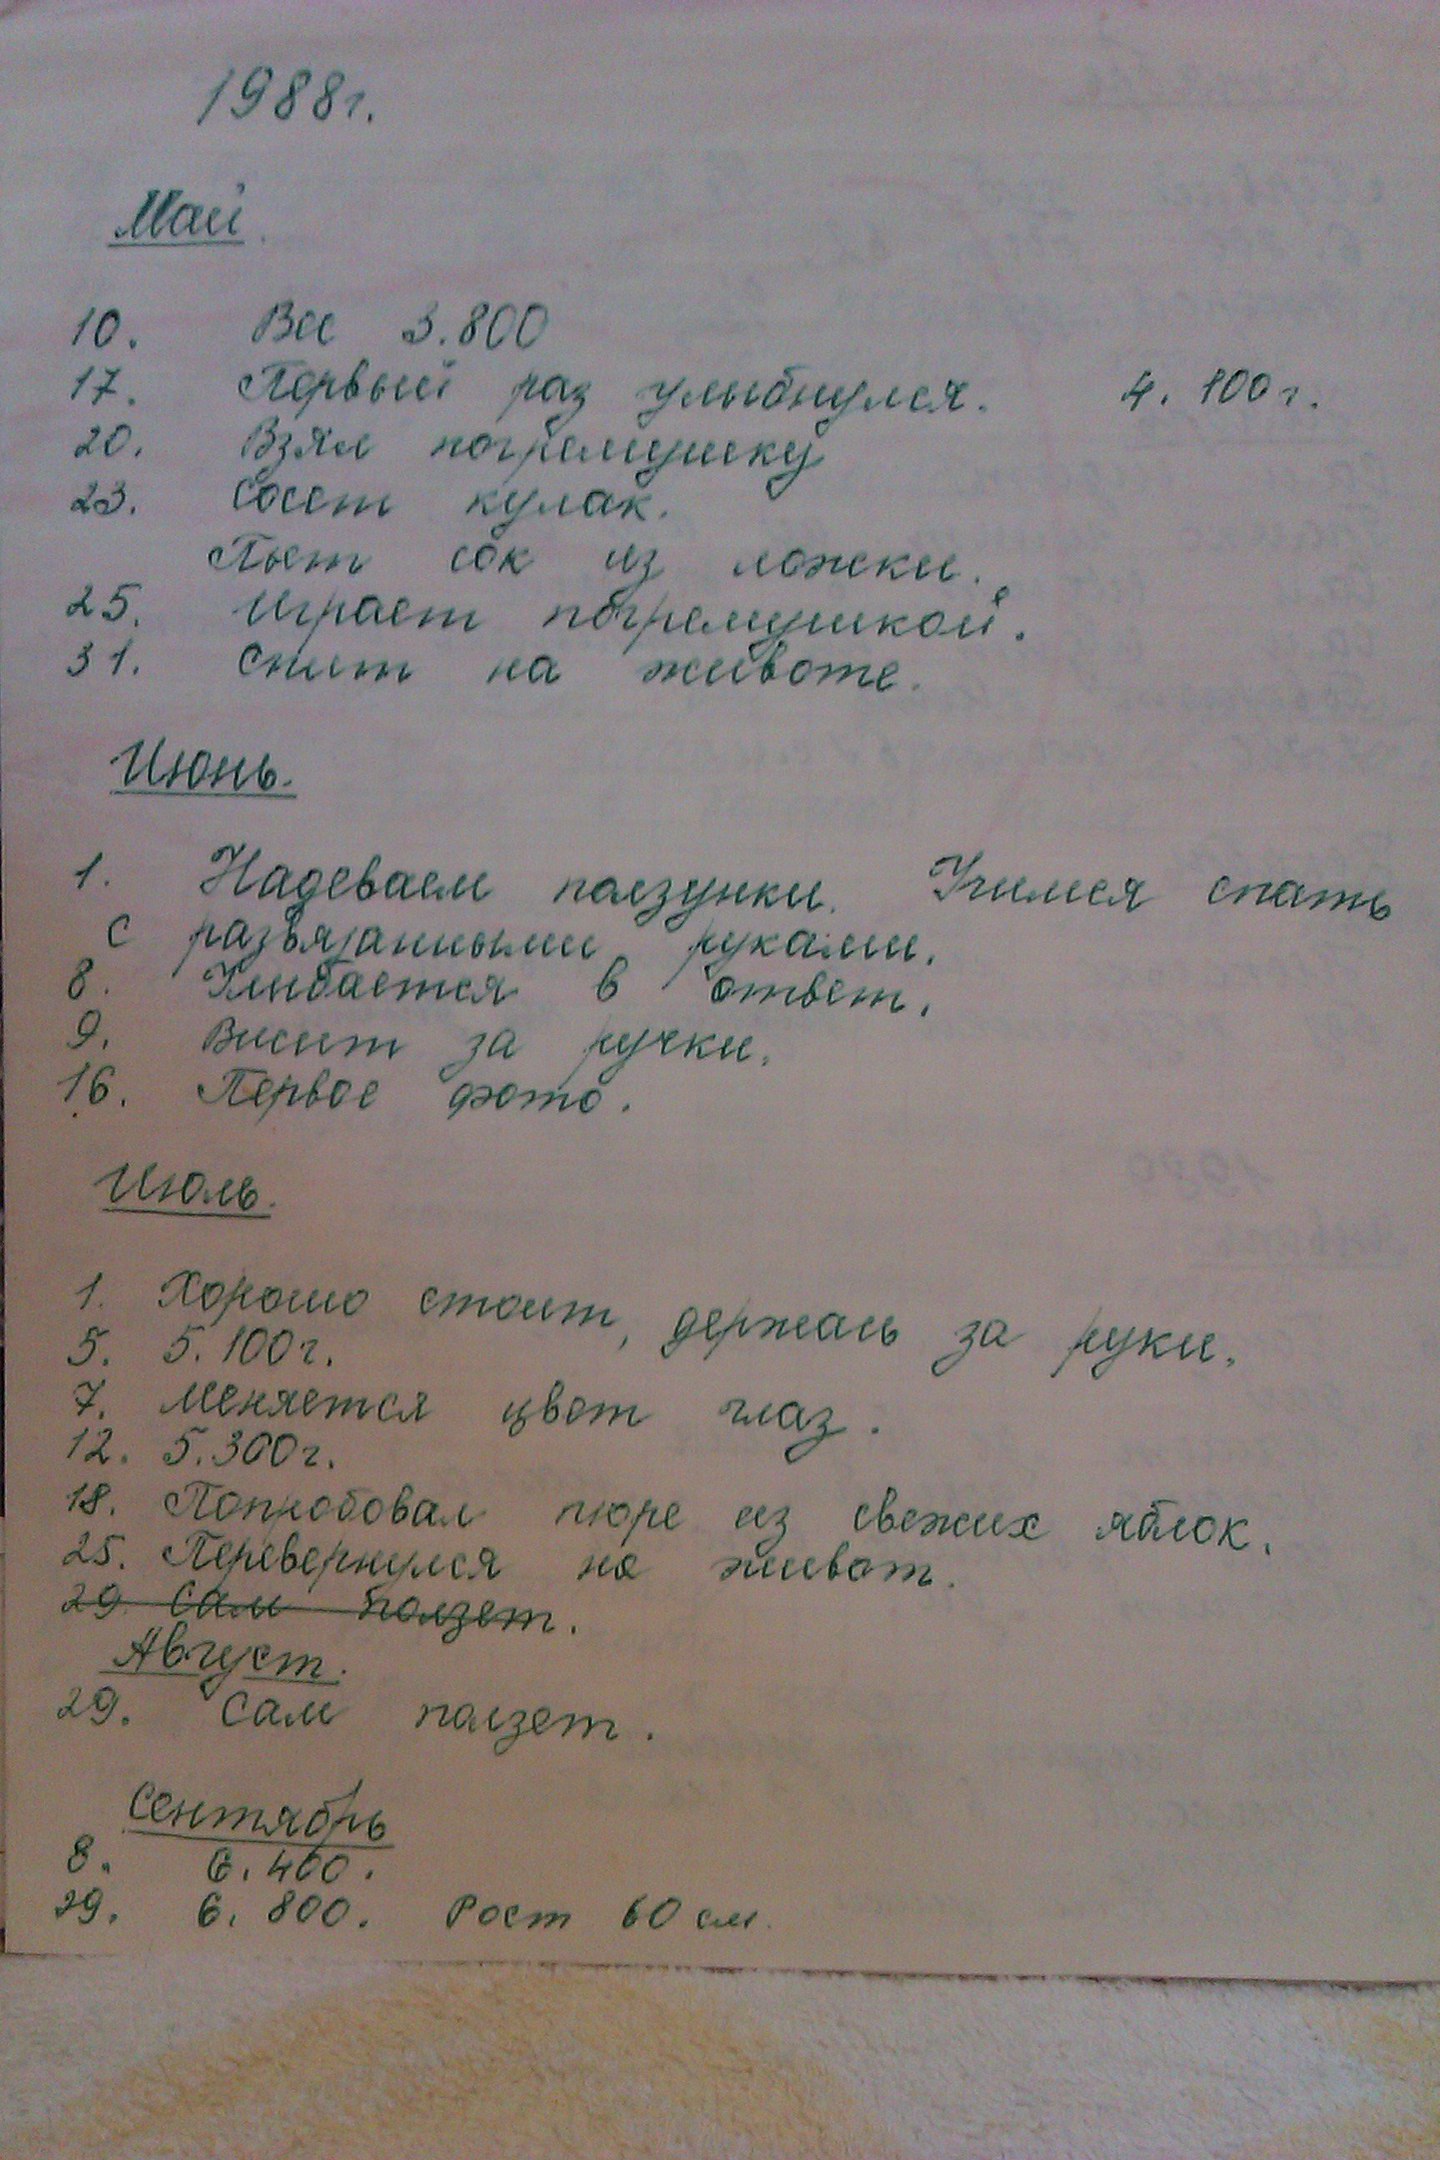 1988г.
Май.
10. Вес 3.800
17. Первый раз улыбнулся. 4.100г.
20. Взял погремушку
23. Сосет кулак.
Пьет сок из ложки.
25. Играет погремушкой.
31. Спит на животе.
Июнь.
1. Надеваем ползунки. Учимся спать
с развязанными руками.
8. Улыбается в ответ.
9. Висит за ручки.
16. Первое фото.
Июль.
1. Хорошо стоит, держась за руки.
5. 5.100г.
7. Меняется цвет глаз.
12. 5.300г.
18. Попробовал пюре из свежих яблок.
25. Перевернулся на живот.
29 Сам ползет.
Август.
29. Сам ползет.
Сентябрь
8. 6.400.
29. 6.800. Рост 60 см.